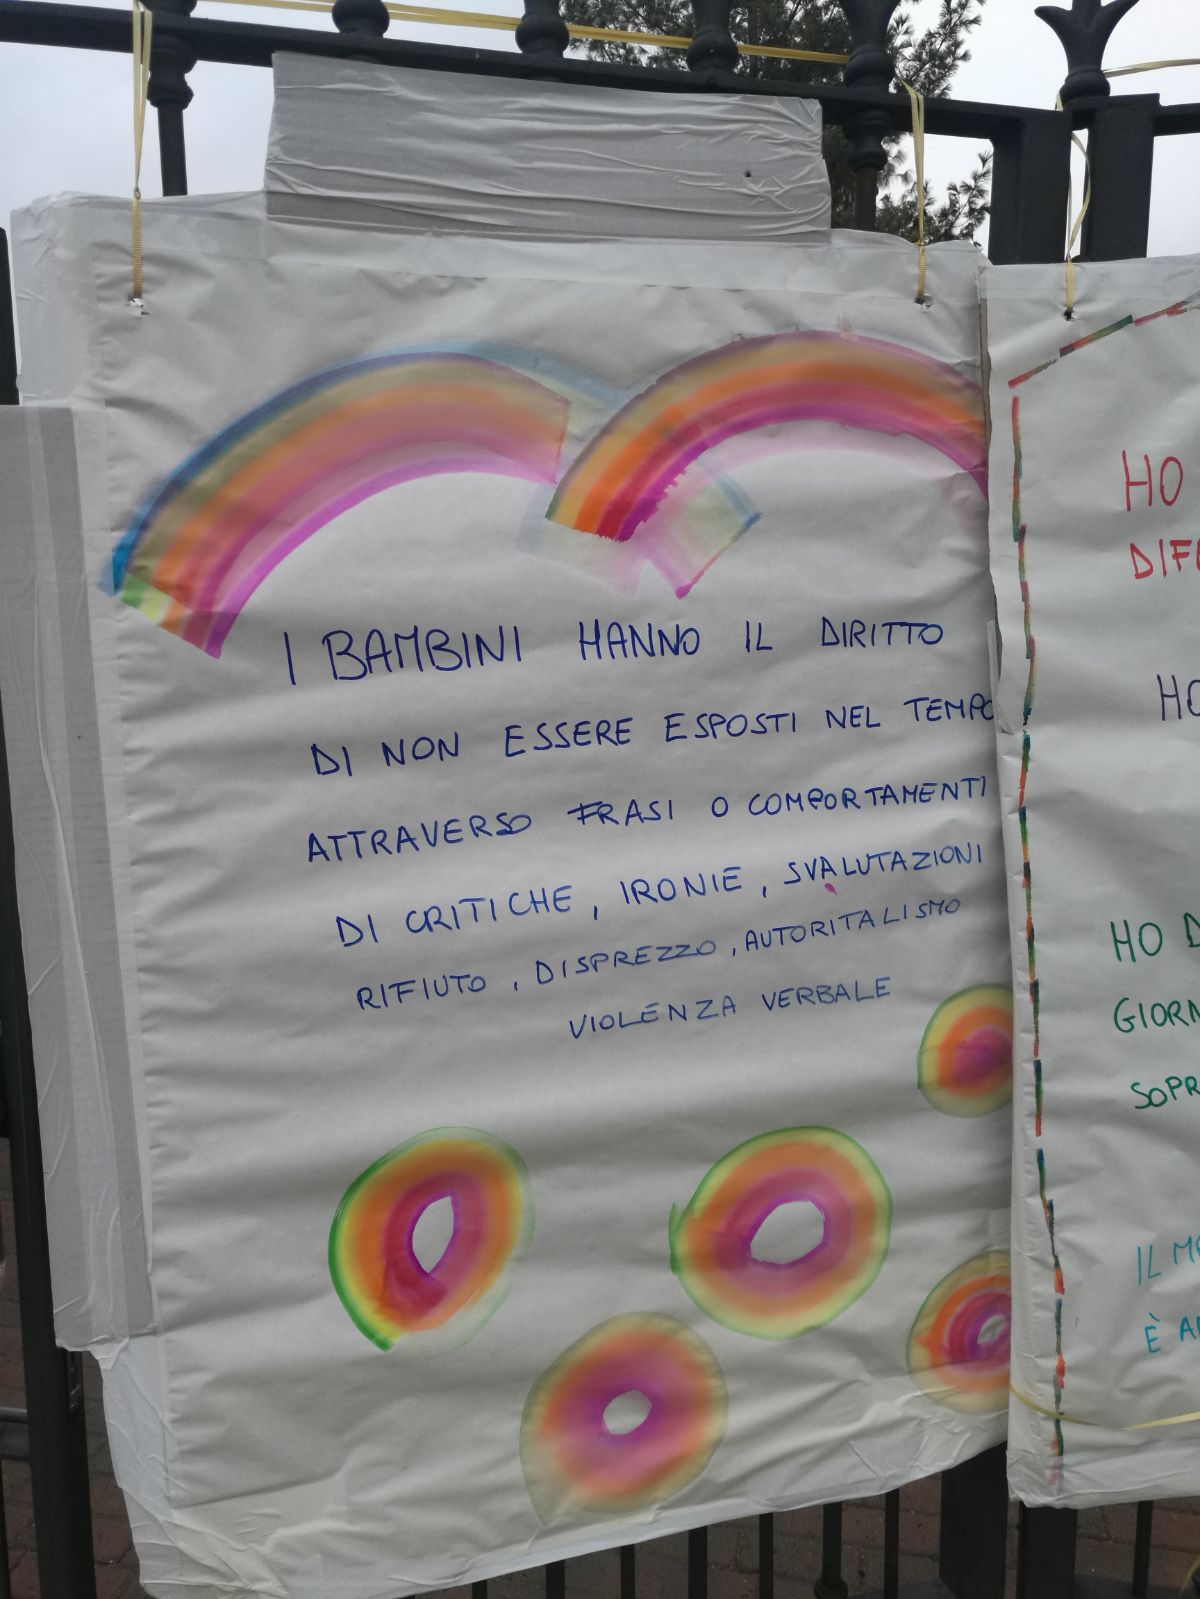 I BAMBINI HANNO IL DIRITTO
DI NON ESSERE ESPOSTI NEL TEMPO
ATTRAVERSO FRASI O COMPORTAMENTI
DI CRITICHE, IRONIE, SVALUTAZIONI
RIFIUTO, DISPREZZO, AUTORITALISMO
VIOLENZA VERBALE
HO
HO
HO D
IL
È